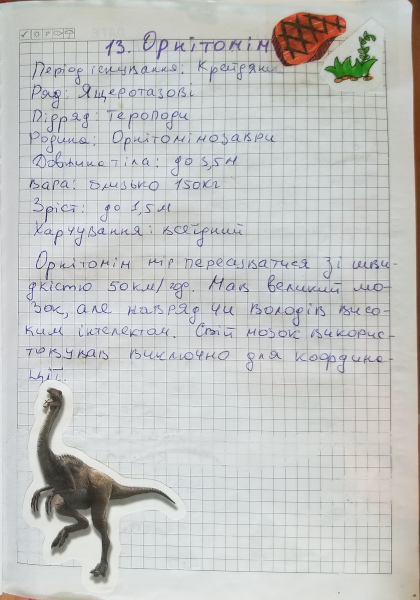 13. Орнітомім
Період існування: Крейдяний
Ряд: Ящеротазові
Підряд: Тероподи
Родина: Орнітомімозаври
Довжина тіла: до 3,5м
Вага: близько 150кг
Зріст: до 1,5м
Харчування: всеїдний
Орнітомім міг пересуватися зі шви-
дкістю 50км/год. Мав великий мо-
зок, але навряд чи володів висо-
ким інтелектом. Свій мозок викорис-
товував виключно для координа-
ції.